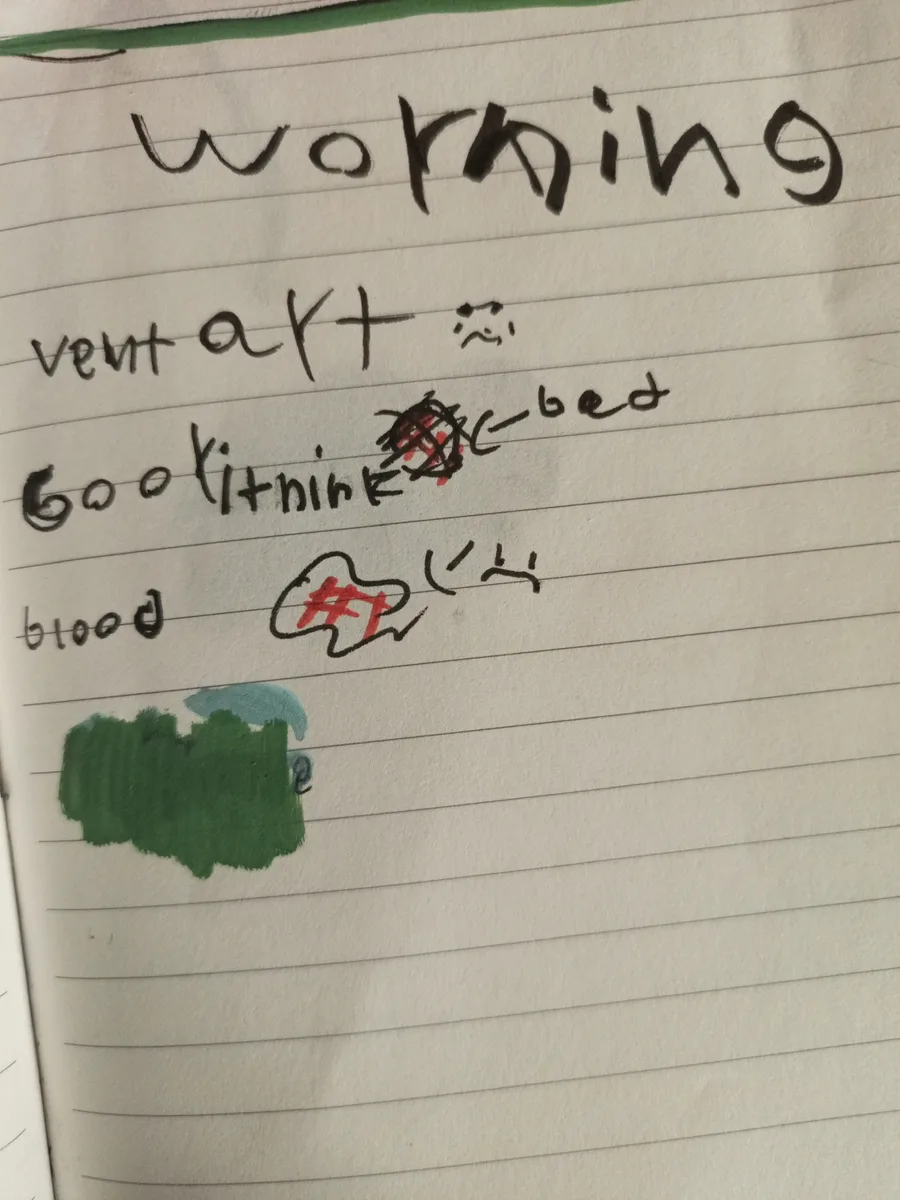 worning
vent art
Goor itnink bad
blood
e